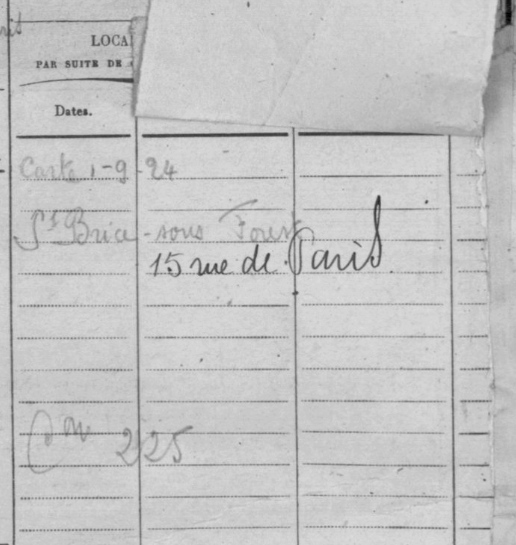 LOCA
PAR SUITE DE
Dates.
Carte 1-9-24
St Brice-sous Foret
15 rue de Paris
Cn 225